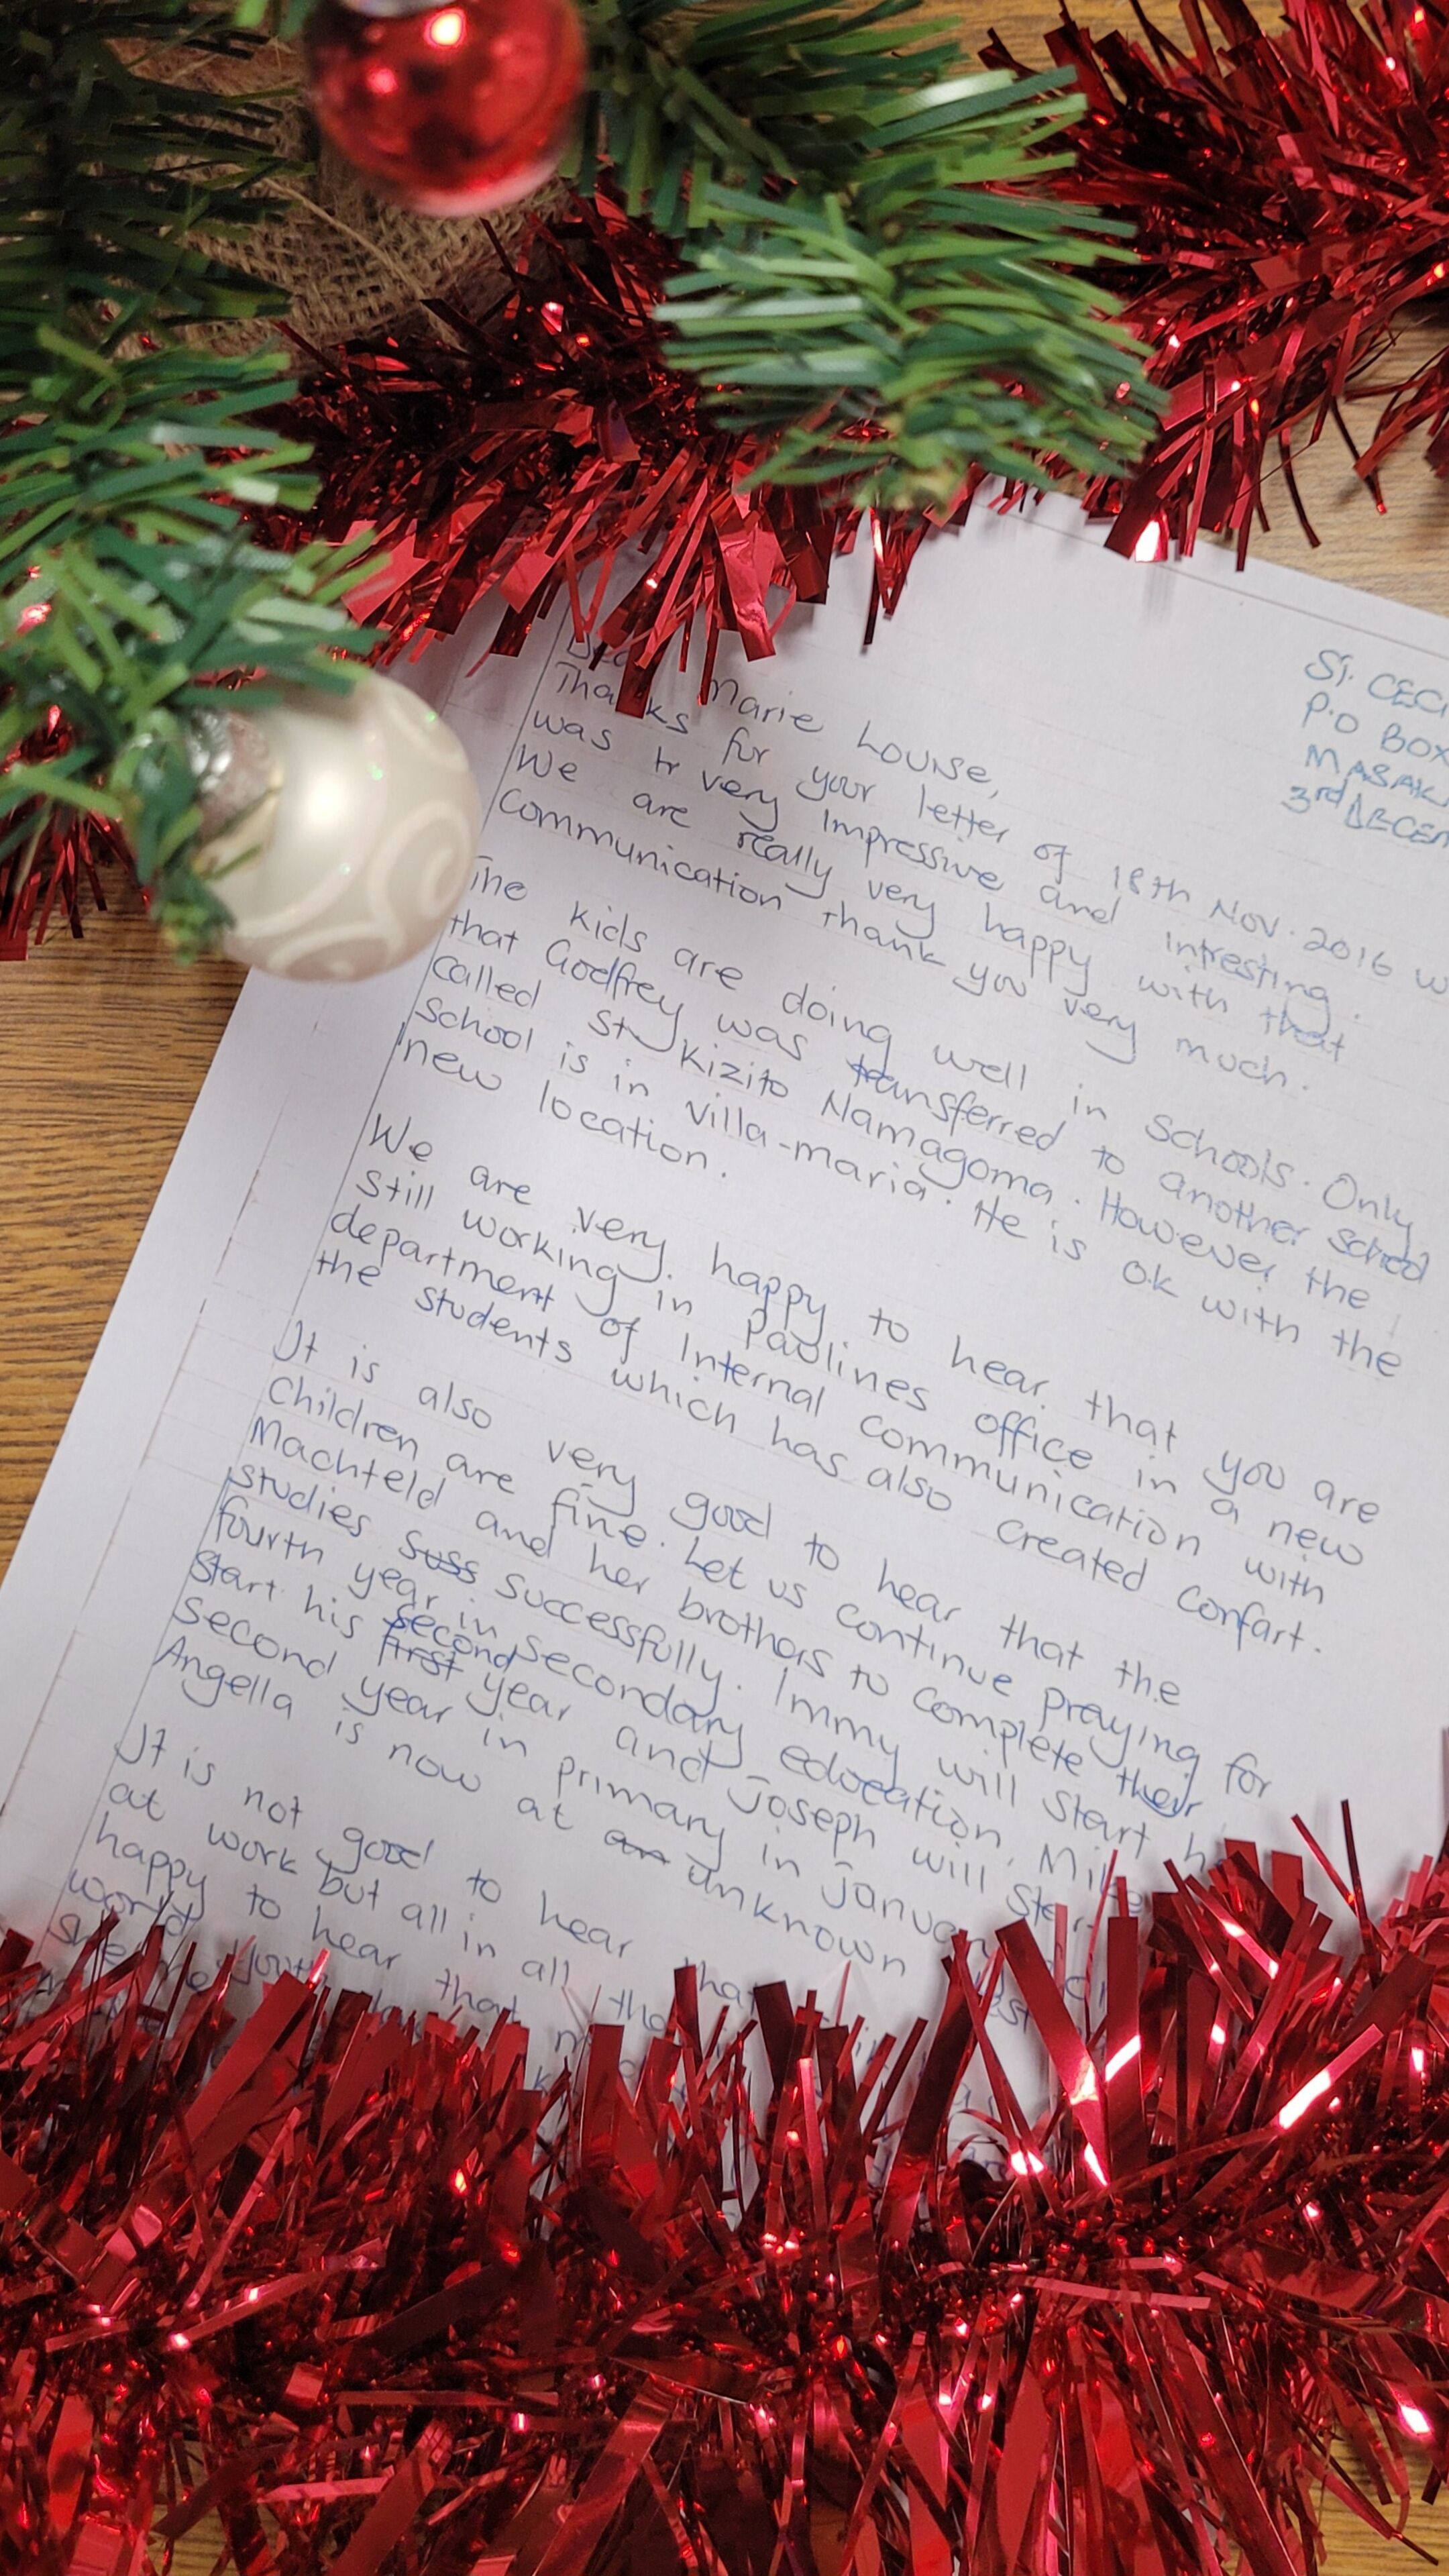 St. CECI
P.O BOX
MASAK
3rd DECEM
Marie Louise,
Thanks for your letter of 18th Nov. 2016 w
was tr very impressive and intresting.
We are really very happy with that
communication thank you very much.
The kids are doing well in schools. Only
that Godfrey was transferred to another school
called St Kizito Namagoma. However the
school is in villa-maria. He is ok with the
new location.
We are very happy to hear that you are
still working in Paulines office in a new
department of Internal communication with
the students which has also created confart.
It is also very good to hear that the
children are fine. Let us continue praying for
Machteld and her brothers to complete their
studies suss successfully. Immy will start h
fourth year in secondary education. Mike
start his first second year and Joseph will star
second year in primary in januar
Angella is now at an unknown
It is not good to hear that
at work but all in all
happy to hear that
world
she